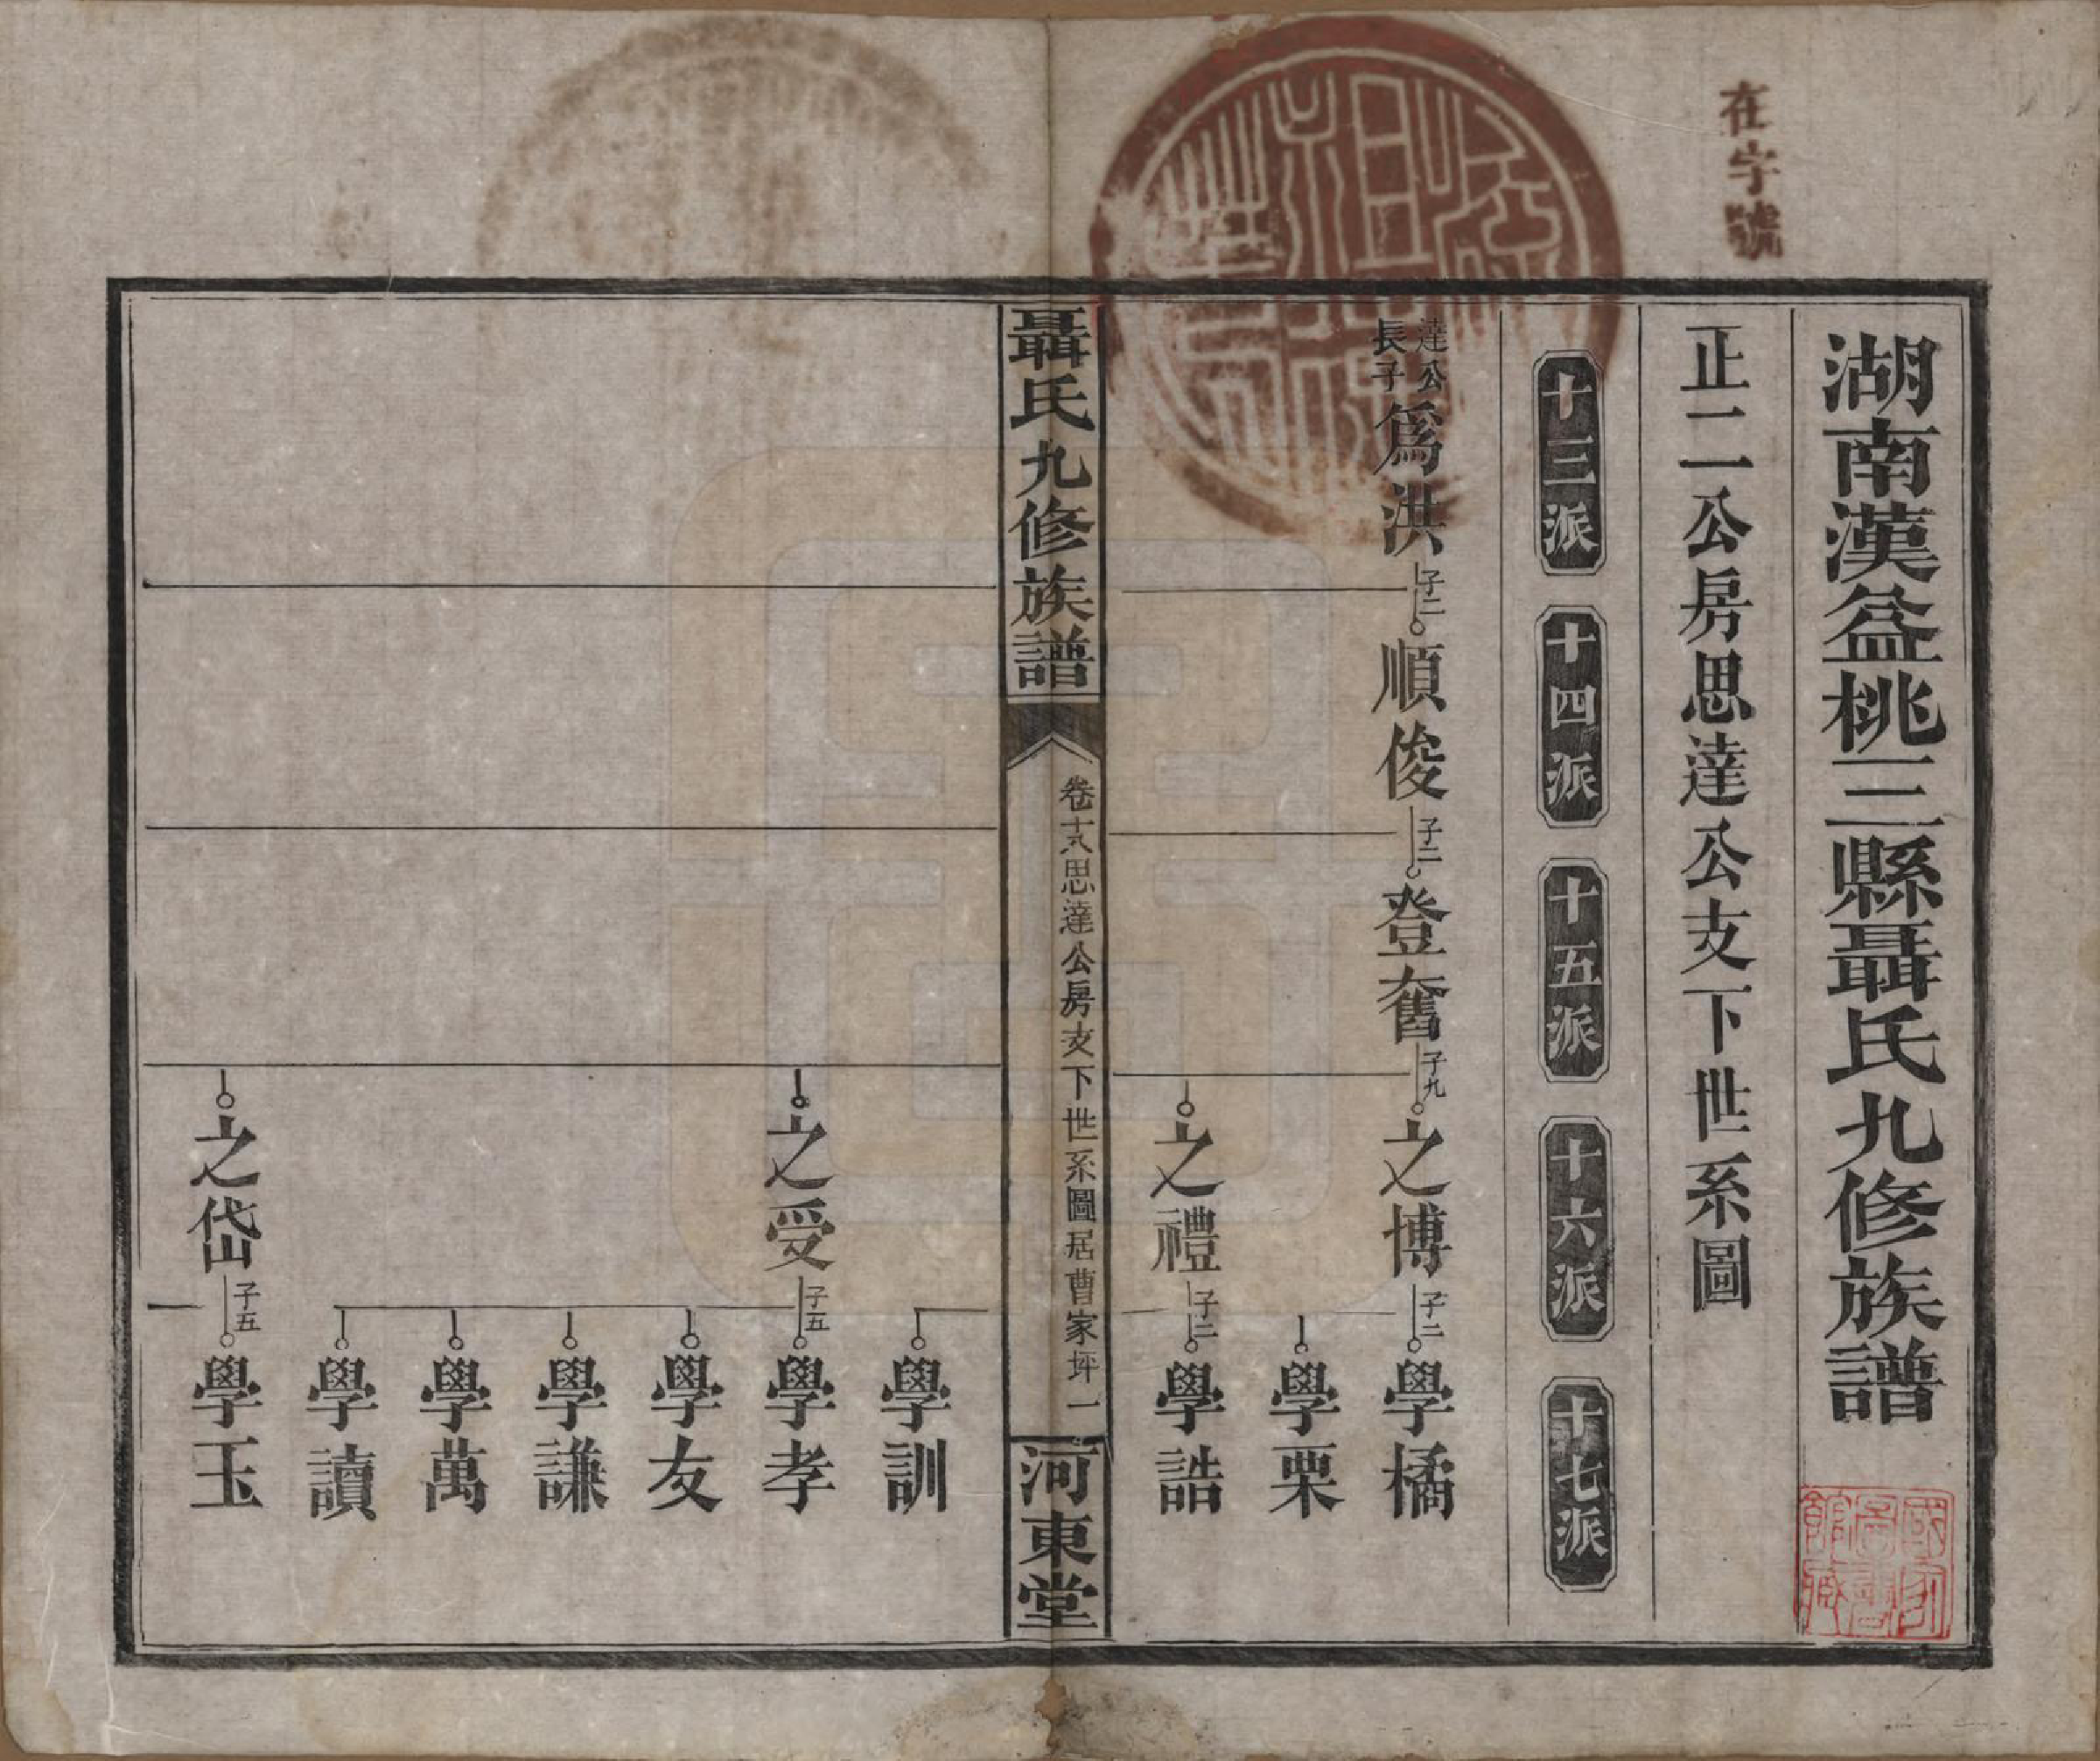 在字號
湖南漢益桃三縣聶氏九修族譜
國家圖書館藏
正二公房思達公支下世系圖
十三派 十四派 十五派 十六派 十七派
達公長子 爲洪 子二 順俊 子二 登奮 子九 之博 子二 學橘
學栗
之禮 子二 學誥
聶氏九修族譜 卷十八思達公房支下世系圖居曹家坪 一 河東堂
學訓
之受 子五 學孝
學友
學謙
學萬
學讀
之岱 子五 學玉